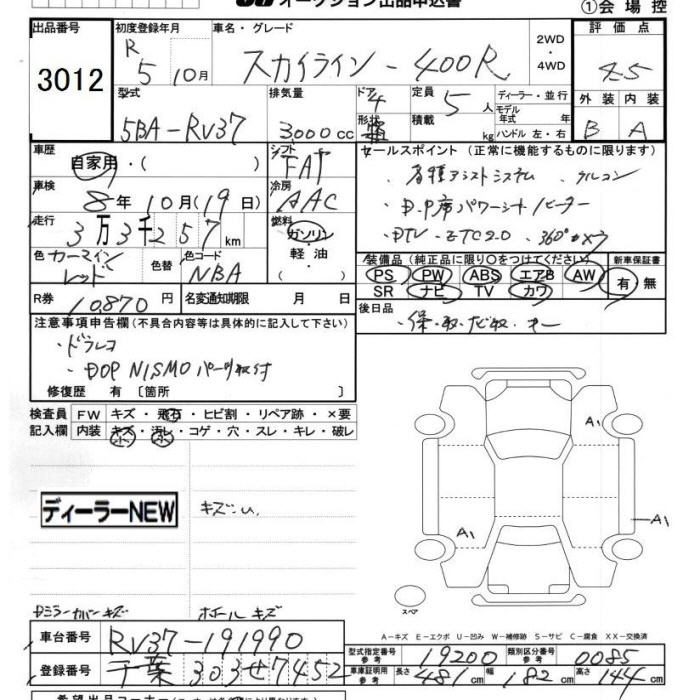 オークション出品申込書 ①会場控
出品番号 初度登録年月 車名・グレード 2WD ・4WD 評価点
3012 R 5 10月 スカイライン - 400R 4.5
型式 排気量 ドア 定員 ディーラー・並行 外装 内装
5BA-RV37 3,000cc 4 5人 モデル年式 年 B A
形状 積載 kg ハンドル 左・右
車歴 シフト セールスポイント (正常に機能するものに限ります)
自家用・( ) FAT ・各種アシストシステム ・クルコン
車検 冷房 ・D.P席パワーシート/ヒーター
8年10月(19日) AAC ・DTV ・ETC2.0 ・360°カメラ
走行 燃料
3万3千257km ガソリン・軽油・( )
色 カーマインレッド 色替 色コード NBA
装備品(純正品に限り○をつけてください) 新車保証書
PS PW ABS エアB AW 有・無
SR ナビ TV カワ
R券 10,870円 名変通知期限 月 日 後日品
・保・取・ナビ取・キー
注意事項申告欄(不具合内容等は具体的に記入して下さい)
・ドラレコ
・DOP NISMOパーツ取付
修復歴 有 〔箇所 〕
検査員 FW キズ・飛石・ヒビ割・リペア跡・×要
記入欄 内装 キズ・汚レ・コゲ・穴・スレ・キレ・破レ
小 小
ディーラーNEW
A1
A1
A1
スペア
Dミラーカバーキズ ホイールキズ
A-キズ E-エクボ U-凹み W-補修跡 S-サビ C-腐食 XX-交換済
車台番号 RV37-191990
登録番号 千葉 303せ7452
型式指定番号 参考 19200 類別区分番号 参考 0085
車庫証明用 参考 長さ 481cm 幅 182cm 高さ 144cm